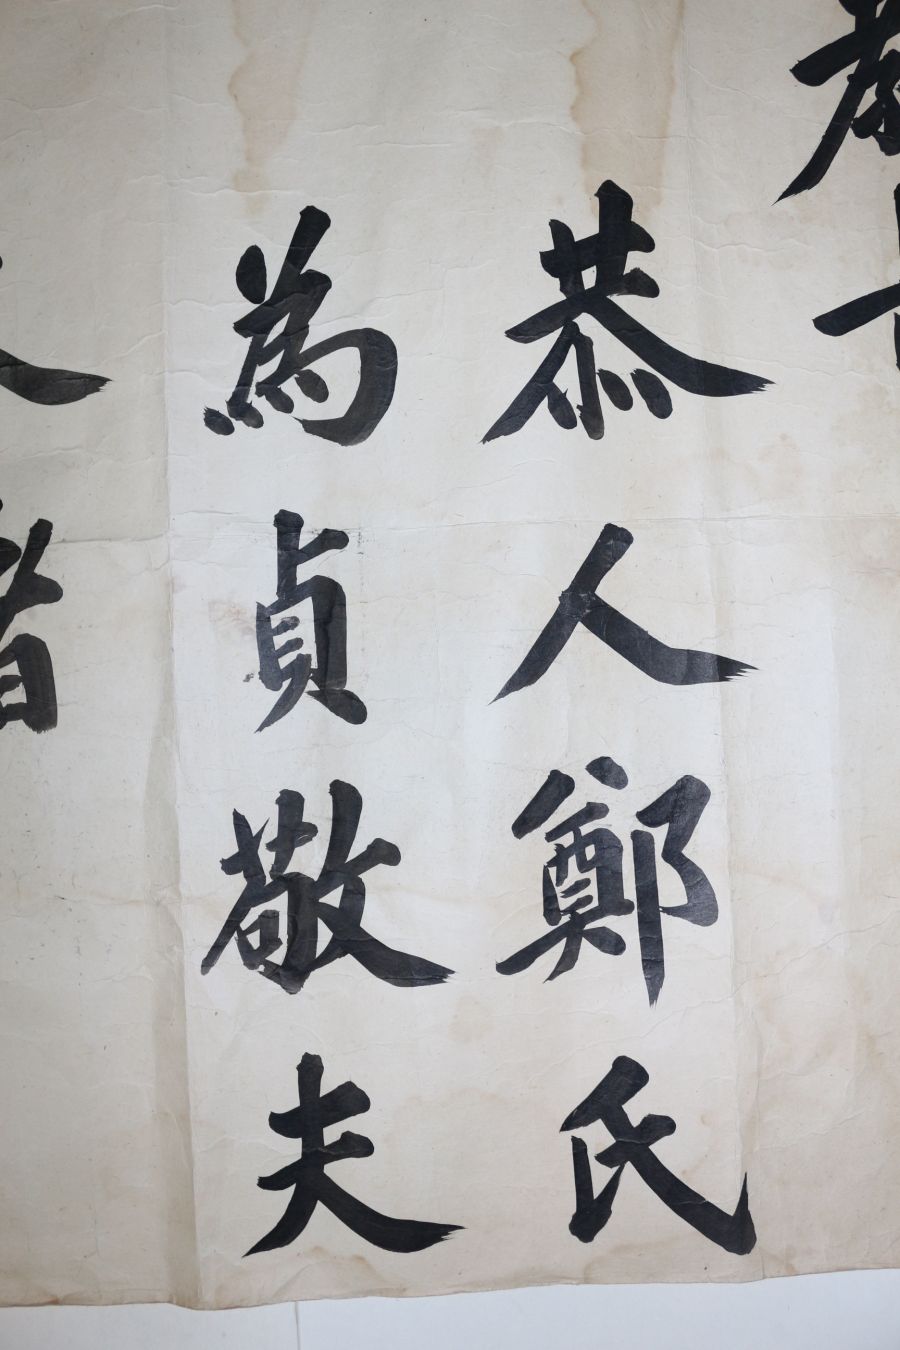 恭人鄭氏
為貞敬夫
者